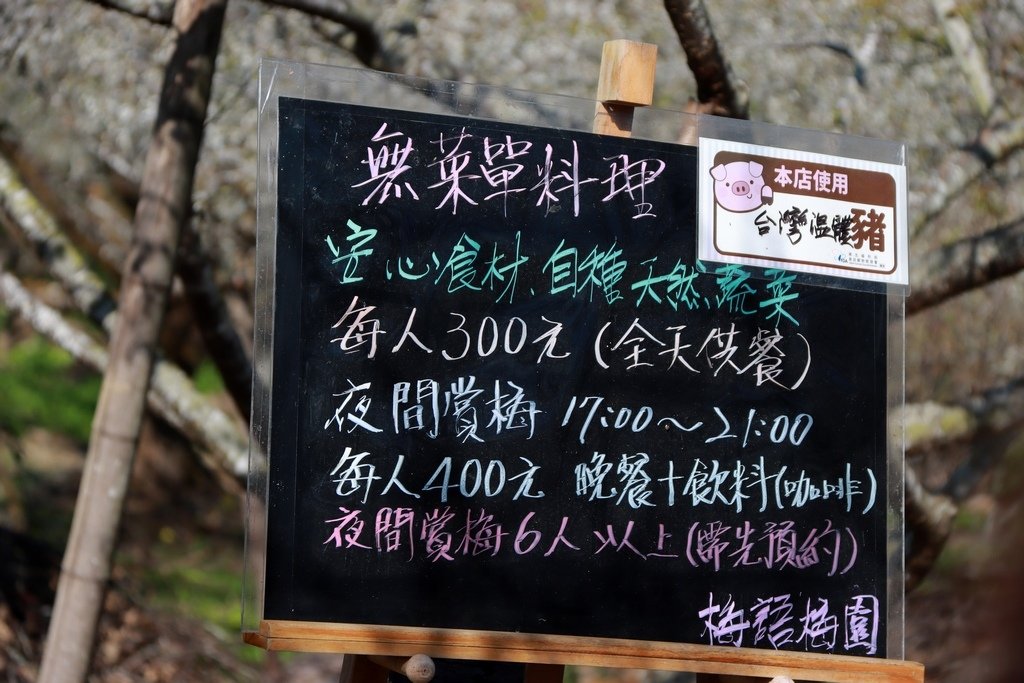 無菜單料理
本店使用
台灣溫體豬
安心食材、自種天然蔬菜
每人300元(全天供餐)
夜間賞梅 17:00～21:00
每人400元 晚餐+飲料(咖啡)
夜間賞梅6人以上(需先預約)
梅語梅園